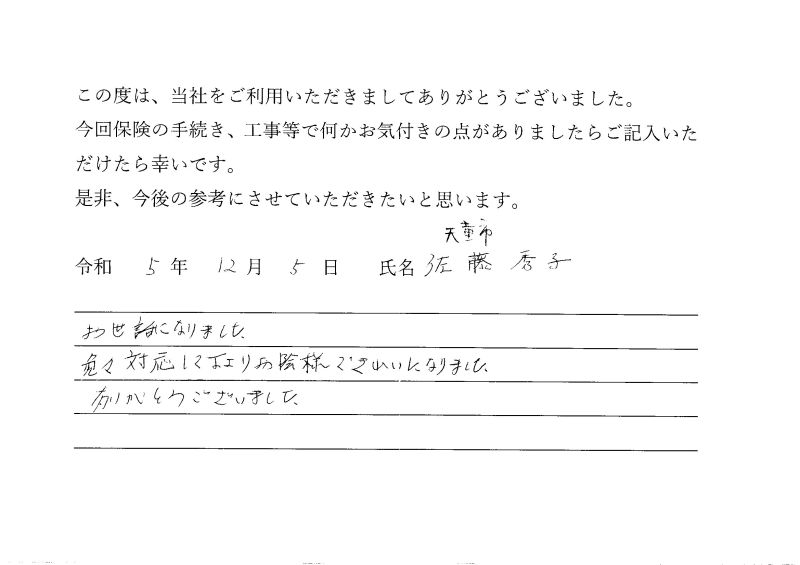 この度は、当社をご利用いただきましてありがとうございました。
今回保険の手続き、工事等で何かお気付きの点がありましたらご記入いた
だけたら幸いです。
是非、今後の参考にさせていただきたいと思います。
天童市
令和 5 年 12 月 5 日 氏名 佐藤 秀子
お世話になりました。
色々対応して お陰様できれいになりました。
有りがとうございました。